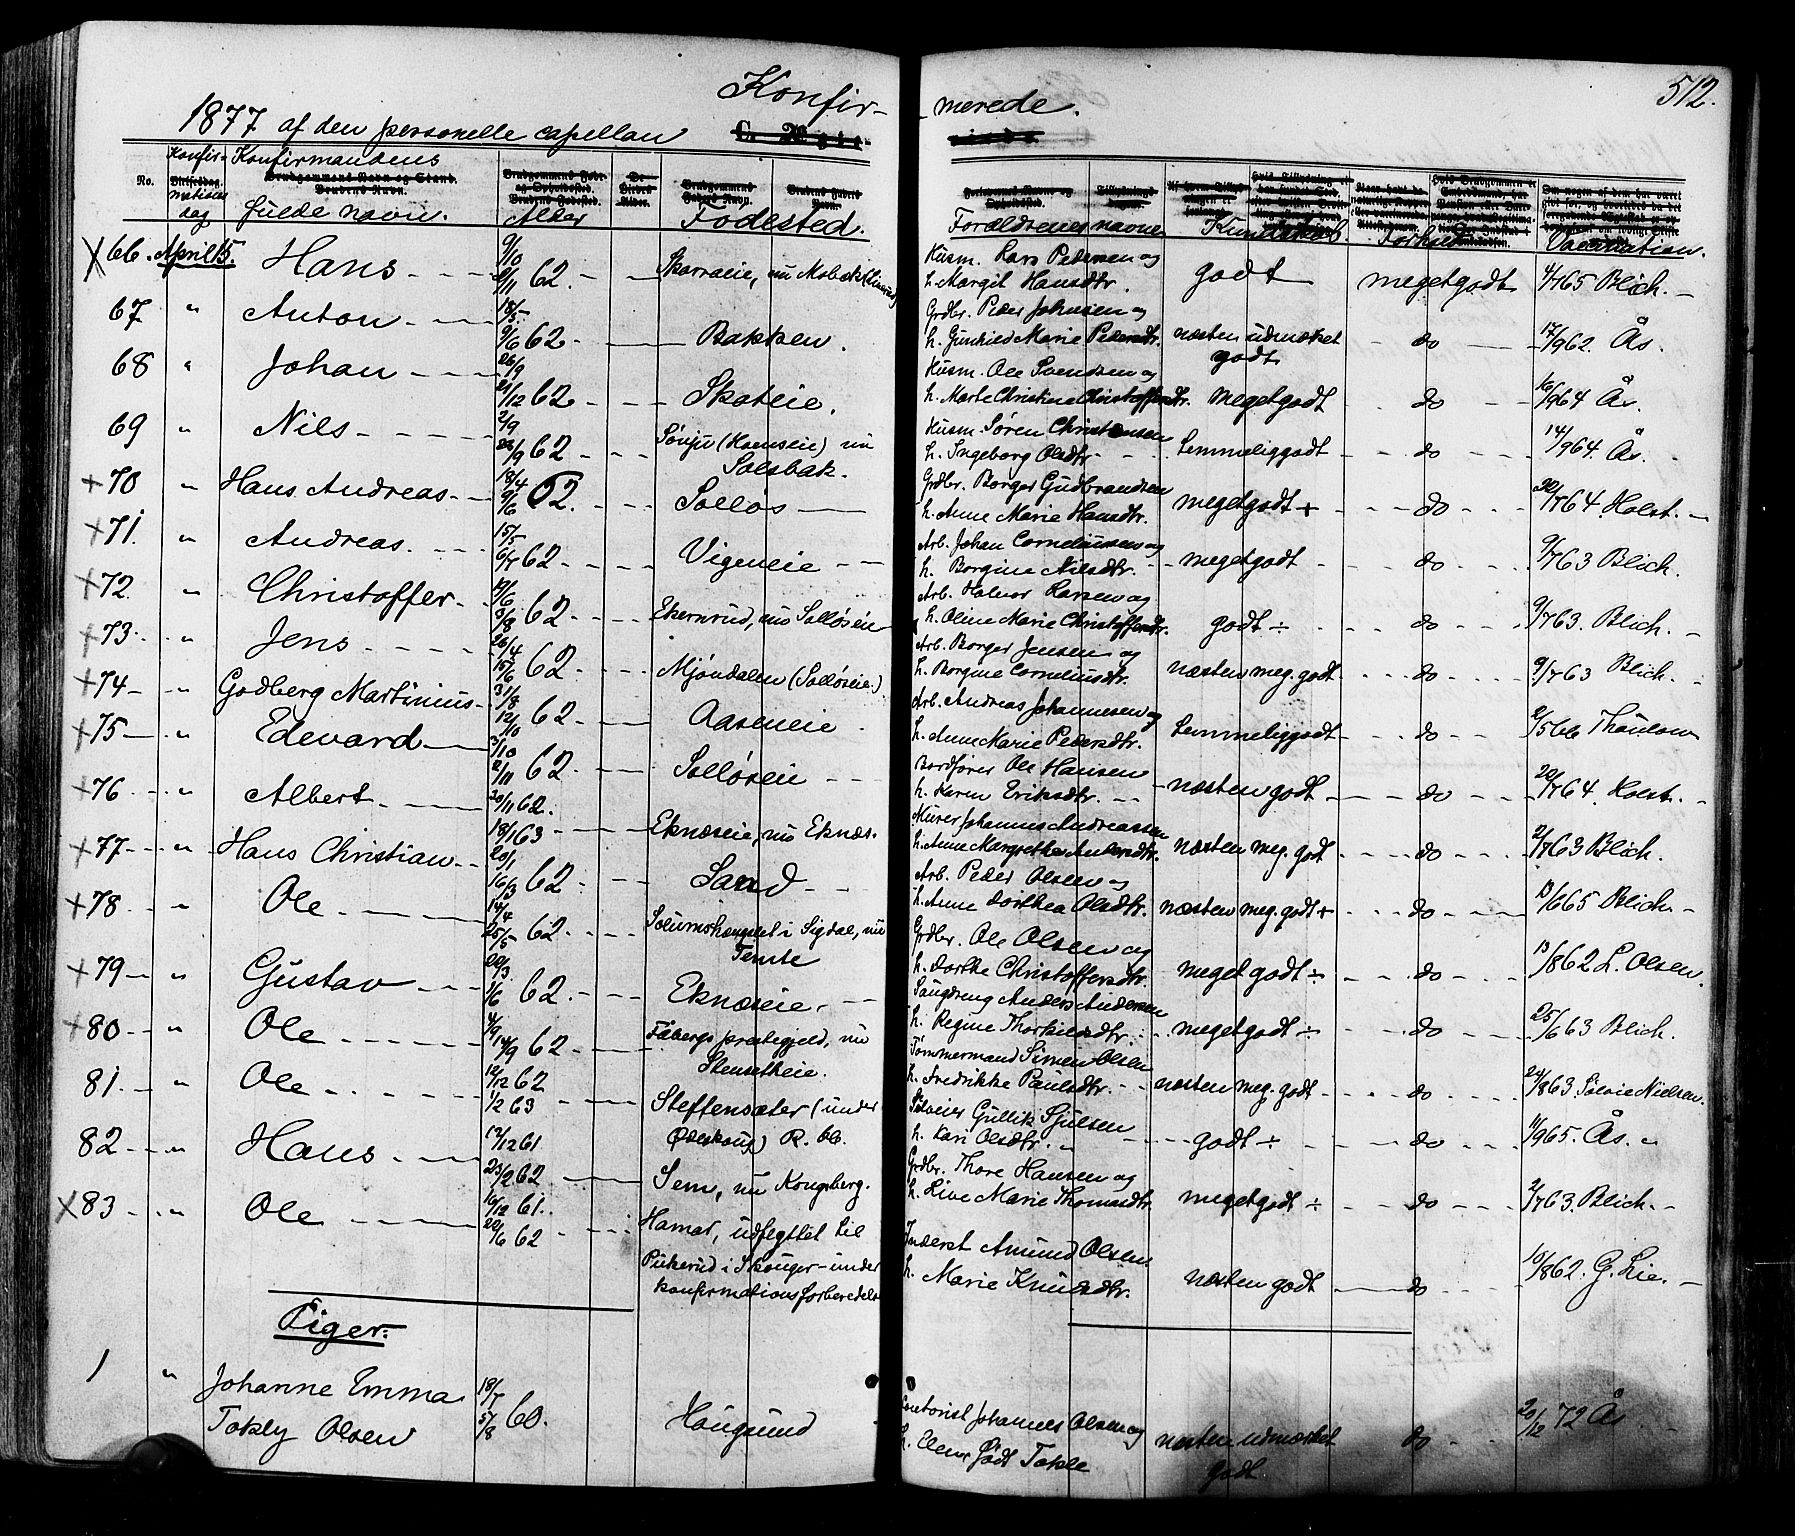 Konfir-
1877 af den personelle capellan C. Vgie-
Konfir- Konfirmandens
No. mations dag fulde navn. Alder Fødested.
66. April 15. Hans 9/10 8/11 62. Skarraeie, nu Mobæk
67 " Anton 18/5 9/6 62. Bakken.
68 " Johan 26/9 21/12 62 Skoteie.
69 " Nils 2/9 28/9 62 Sønju (Hoenseie) nu
Solsbak.
70 " Hans Andreas 18/4 9/6 62. Solløs
71. " Andreas. 15/5 6/7 62 Vigeneie
72. " Christoffer 17/6 3/8 62 Ekernrud, nu Solløseie
73 " Jens 26/4 15/6 62 Mjøndalen (Solløseie.)
74 " Godberg Martinius 31/8 12/10 62 Aaseneie
75 " Edevard 3/10 2/11 62 Solløseie
76 " Albert 20/11 62. 18/1 63 Eknæseie, nu Eknæs.
77 " Hans Christian 20/1 16/3 62 Sand
78 " Ole 14/4 25/5 62 Solumshaugset i Sigdal, nu
Temte
79 " Gustav 20/3 1/6 62. Eknæseie.
80 " Ole 4/9 14/9 62 Fåbergs prestegjeld, nu
Stensetheie.
81 " Ole 12/12 62 1/2 63 Steffensæter (under
Ødeskoug) R. Ob.
82 " Hans 17/12 61 23/2 62 Sem, nu Kongsberg.
83 " Ole 16/12 61. 22/6 62 Hamar, udflyttet til
Pukerud i Skouger under
konfirmationsforberedels
Piger:
1 " Johanne Emma 18/7
Tokly Olsen 5/8 60. Hougsund
merede. 512.
Forældrenes navne Kundskab. Forhold Vaccination.
Kusm. Lars Pedersen og
h. Margit Hansdtr. godt megetgodt 4/7 65 Blich.
Grdbr. Peder Johnsen og
h. Gunhild Marie Pedersdtr. næsten udmærket godt do 17/9 62. Ås.
Kusm. Ole Svendsen og
h. Marte Christine Christoffersdtr. megetgodt do 16/9 64 Ås.
Kusm. Søren Christensen
h. Ingeborg Olsdtr. temmeliggodt do 14/9 64. Ås.
Grdbr. Borger Gudbrandsen
h. Anne Marie Hansdtr. megetgodt + do 20/7 64. Holst.
Arb. Johan Corneliussen og
h. Borgine Nilsdtr. megetgodt do 9/7 63 Blich.
Arb. Halvor Larsen og
h. Oline Marie Christoffersdtr. godt ÷ do 9/7 63. Blich.
Arb. Borger Jensen og
h. Borgine Corneliusdtr. næsten meg. godt do 9/7 63 Blich.
Arb. Andreas Johannesen og
h. Anne Marie Pedersdtr. temmeliggodt do 2/5 66 Thaulow
Bordfører Ole Hansen
h. Karen Eriksdtr. næsten godt do 20/7 64. Holst.
Murer Johannes Andreassen
h. Anne Margrethe Andersdtr. næsten meg. godt do 2/7 63 Blich.
Arb. Peder Olsen og
h. Anne Dorthea Olsdtr. næsten meg. godt + do 13/6 65 Blich
Grdbr. Ole Olsen og
h. Dorthe Christoffersdtr. meget godt ÷ do 13/8 62 L. Olsen.
Saugdreng Anders Andersen
h. Regine Thorkildsdtr. megetgodt ÷ do 25/6 63 Blich.
Tømmermand Simen Olsen
h. Fredrikke Paulsdtr. næsten meg. godt do 24/8 63 Sølvie Nielsen.
Selveier Gullik Sjulsen
h. Kari Olsdtr. godt ÷ do 11/9 65. Ås.
Grdbr. Thore Hansen og
h. Live Marie Thomasdtr. megetgodt ÷ do 2/7 63. Blich.
Inderst Amund Olsen
h. Marie Knudsdtr. næsten godt do 10/8 62. G. Lie.
Kontorist Johannes Olsen og
h. Elen Gjødt Tokle næsten udmærket godt do 20/12 72 Ås